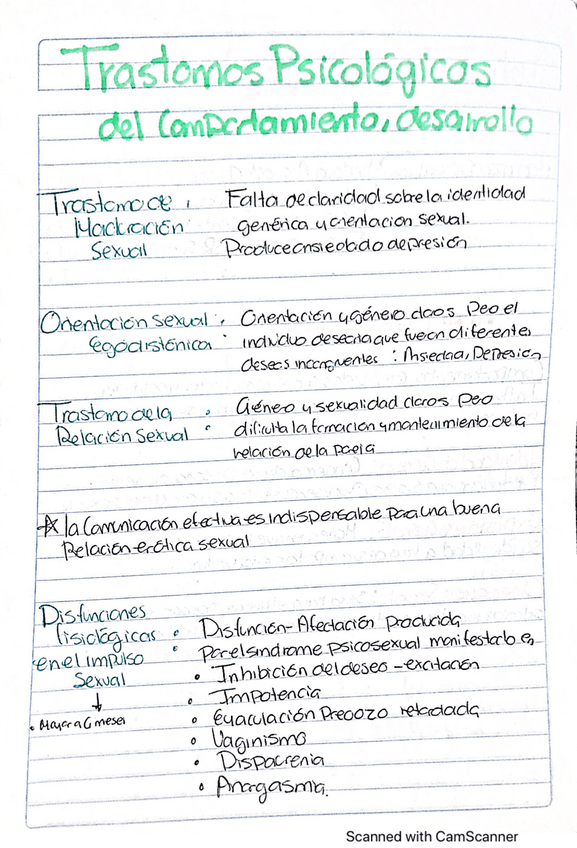 Trastornos Psicológicos
del Comportamiento, desarrollo
Trastorno de : Falta de claridad sobre la identidad
Maduración genérica y orientacion sexual.
Sexual Produce ansiedad o depresión
Orientación sexual : Orientación y género claros Peo el
Egodistónica individuo desearia que fueran diferentes
deseos incongruentes : Ansiedad, Depresión
Trastorno de la : Género y sexualidad claros Peo
Relación Sexual dificulta la formación y mantenimiento de la
relación de la pareja
☆ la Comunicación efectiva es indispensable para una buena
Relación erótica sexual
Disfunciones
fisiológicas : Disfunción - Afectación Producida
en el impulso Por el sindrome psicosexual manifestado en
Sexual • Inhibición del deseo - excitación
↓ • Impotencia
• Mayor a 6 meses • Eyaculación Precoz o retardada
• Vaginismo
• Disparenia
• Anorgasmia.
Scanned with CamScanner